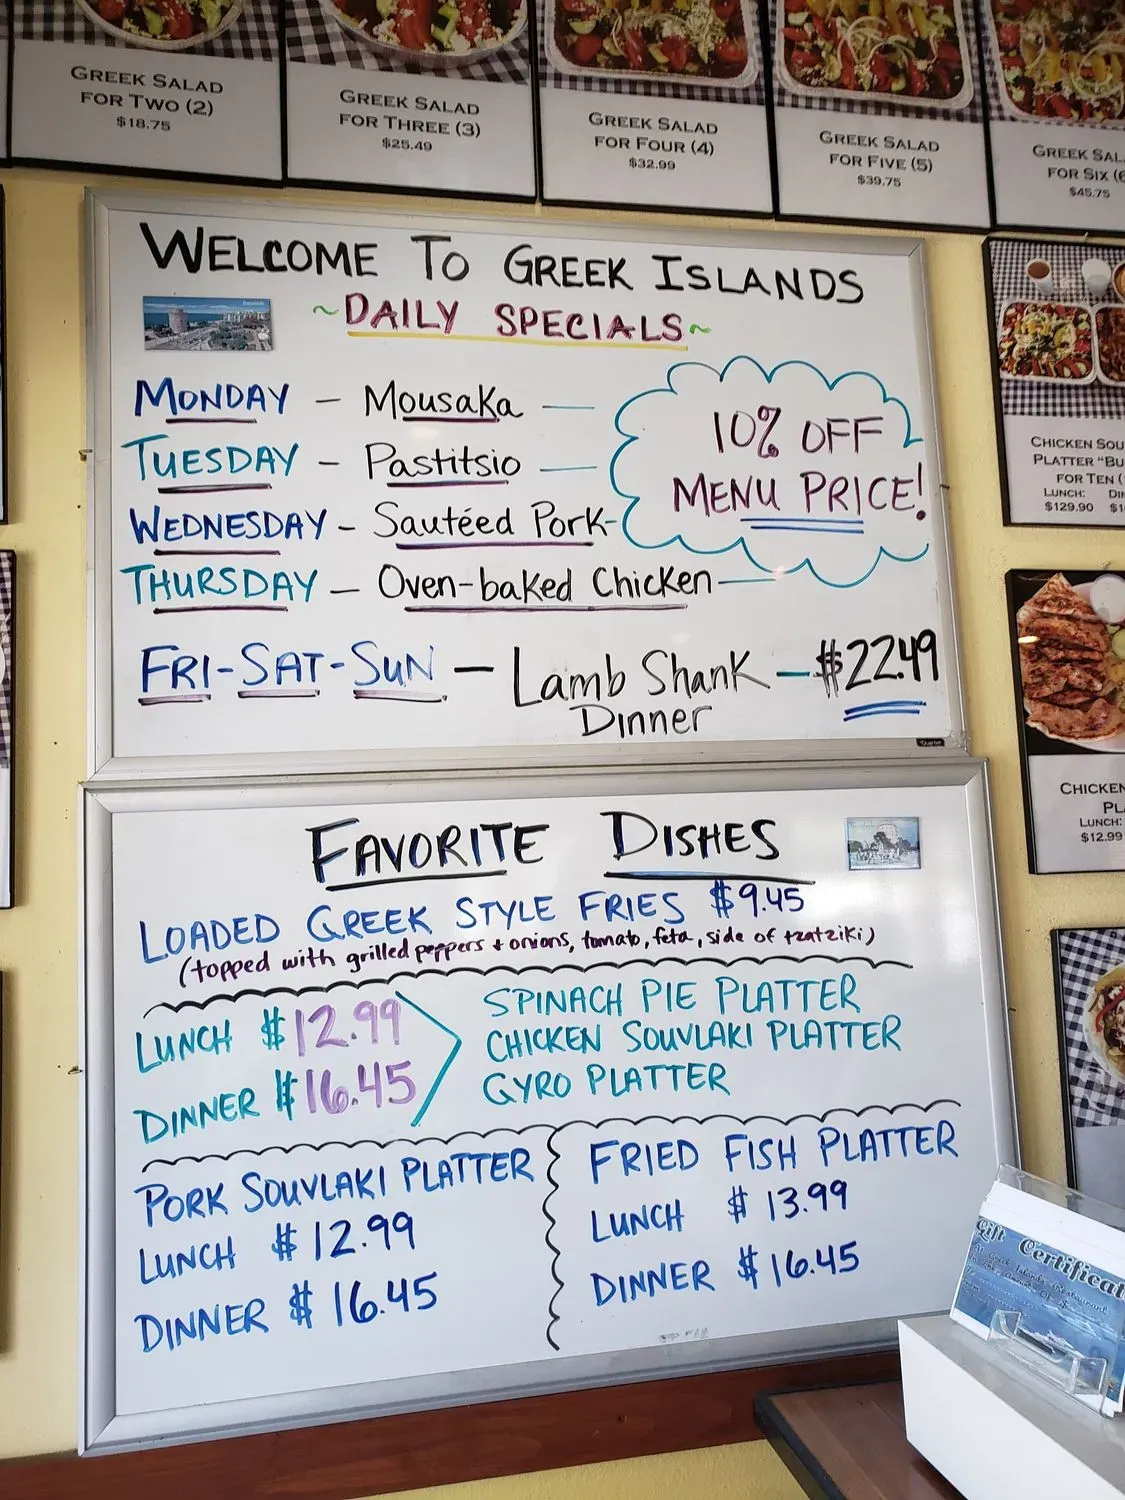 GREEK SALAD
FOR TWO (2)
$18.75
GREEK SALAD
FOR THREE (3)
$25.49
GREEK SALAD
FOR FOUR (4)
$32.99
GREEK SALAD
FOR FIVE (5)
$39.75
GREEK SAL
FOR SIX (6
$45.75
WELCOME TO GREEK ISLANDS
~DAILY SPECIALS~
MONDAY - MousaKa
TUESDAY - Pastitsio
WEDNESDAY - Sautéed Pork
THURSDAY - Oven-baked Chicken
10% OFF
MENU PRICE!
FRI-SAT-SUN - Lamb Shank - $22.49
Dinner
Quartet
CHICKEN SOU
PLATTER "BU
FOR TEN (
LUNCH: DI
$129.90 $1
CHICKEN
PL
LUNCH:
$12.99
FAVORITE DISHES
LOADED GREEK STYLE FRIES $9.45
(topped with grilled peppers + onions, tomato, feta, side of tzatziki)
LUNCH $12.99
DINNER $16.45
SPINACH PIE PLATTER
CHICKEN SOUVLAKI PLATTER
GYRO PLATTER
PORK SOUVLAKI PLATTER
LUNCH $12.99
DINNER $16.45
FRIED FISH PLATTER
LUNCH $13.99
DINNER $16.45
Gift Certificat
Greek Islands Restaurant